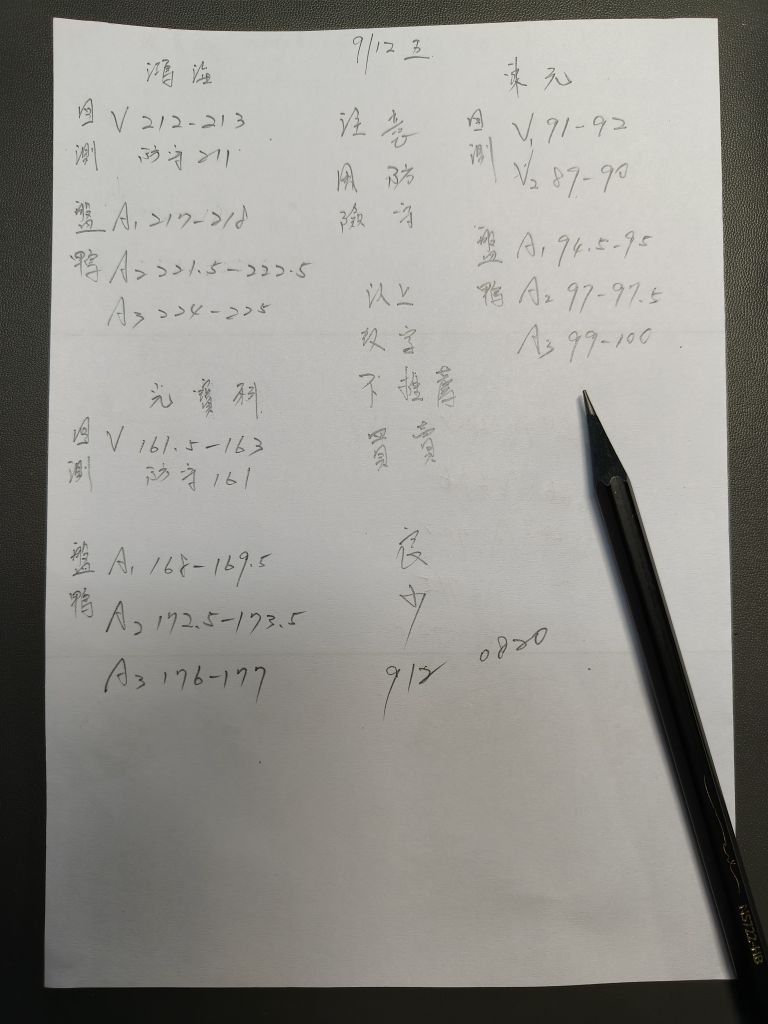 9/12 五
鴻海
回測 V 212-213
防守 211
盤 A1 217-218
鴨 A2 221.5-222.5
A3 224-225
光寶科
回測 V 161.5-163
防守 161
盤 A1 168-169.5
鴨 A2 172.5-173.5
A3 176-177
注意
風防
險守
以上
數字
不推薦
買賣
良
少
912 0820
東元
回測 V1 91-92
V2 89-90
盤 A1 94.5-95
鴨 A2 97-97.5
A3 99-100